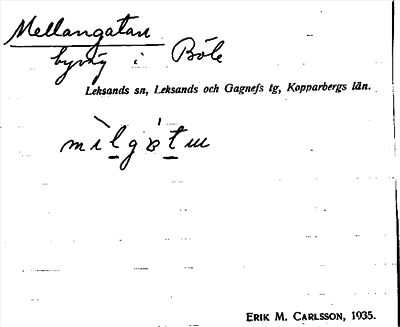 Mellangatan
byväg i Böle
Leksands sn, Leksands och Gagnefs tg, Kopparbergs län.
ERIK M. CARLSSON, 1935.